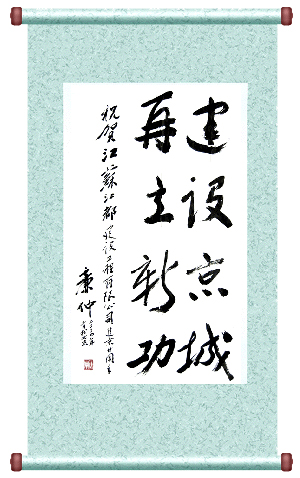 建设京城
再立新功
祝贺江苏江都建设工程有限公司进京廿周年
秉仲